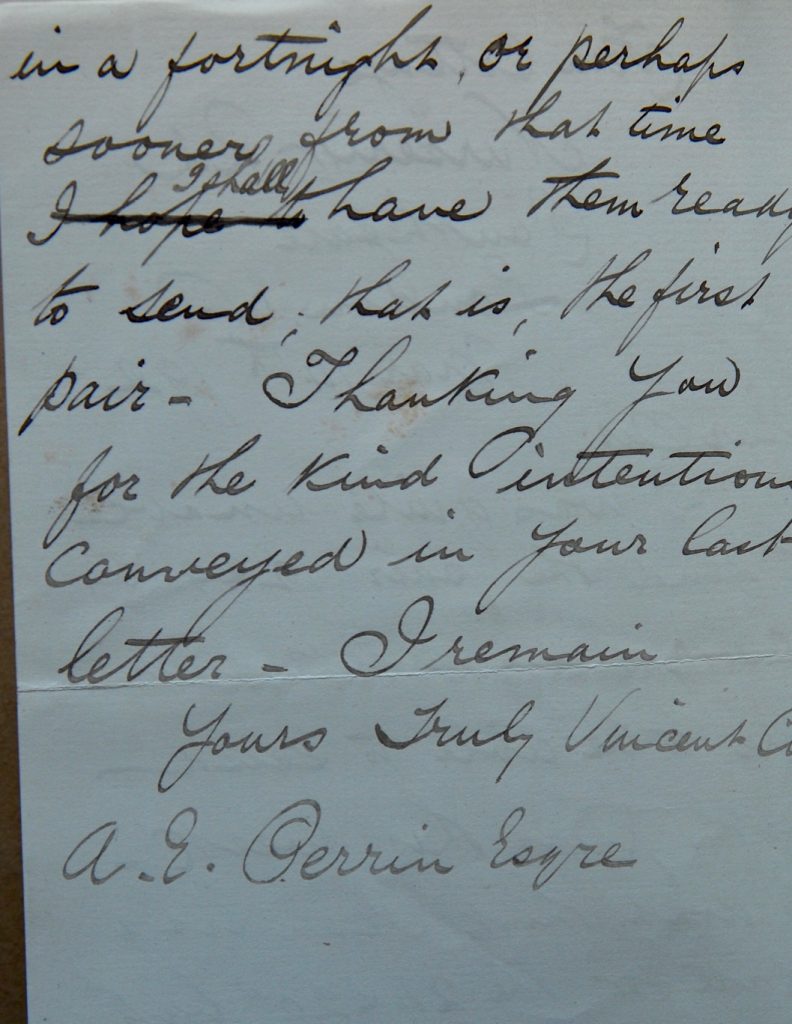 in a fortnight, or perhaps
sooner, from that time
I shall
I hope to have them ready
to send, that is, the first
pair - Thanking you
for the kind intention
conveyed in your last
letter - I remain
Yours Truly Vincent
A. E. Perrin Esqre